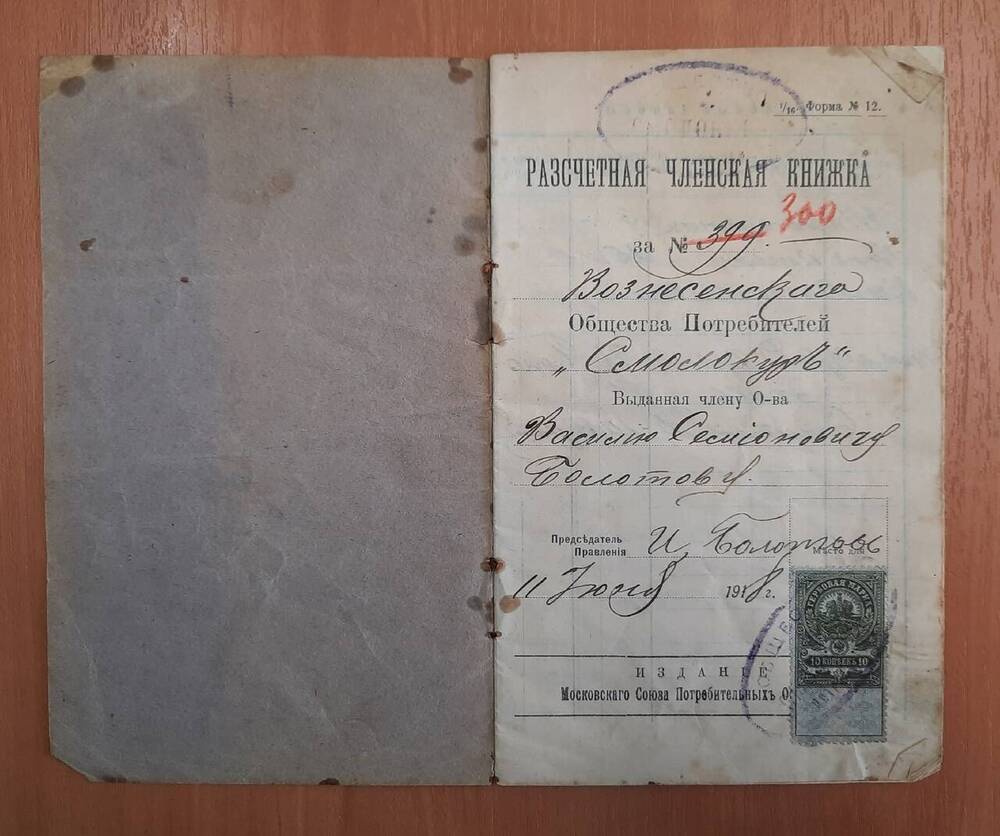 1/16. Форма № 12.
РАЗСЧЕТНАЯ ЧЛЕНСКАЯ КНИЖКА
за № 399. 300
Вознесенскаго
Общества Потребителей
„Смолокуръ“
Выданная члену О-ва
Василію Семіоновичу
Болотову.
Предсѣдатель
Правленія И. Болотовъ
Место для
11 Іюня 1918 г.
ГЕРБОВАЯ МАРКА
10 КОПѢЕКЪ 10
ОБЩЕСТВ
ИЗДАНІЕ
Московскаго Союза Потребительныхъ О